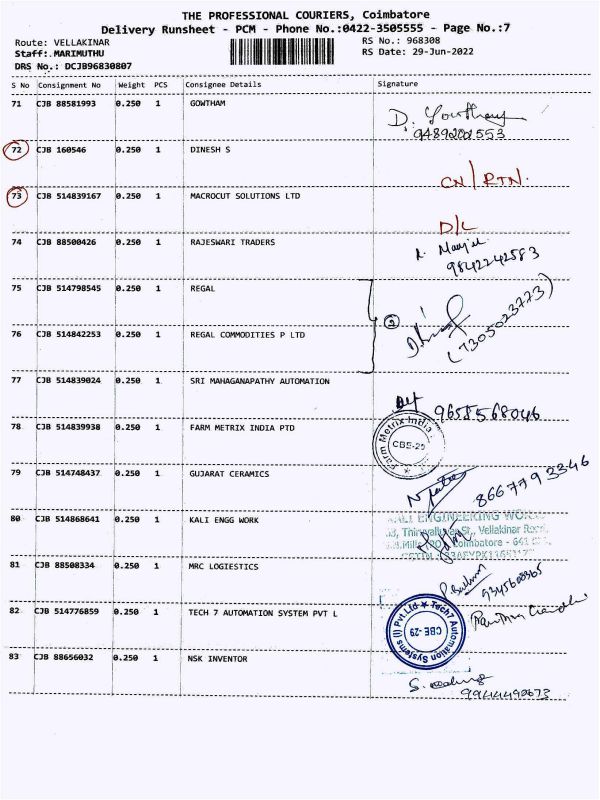 THE PROFESSIONAL COURIERS, Coimbatore
Delivery Runsheet - PCM - Phone No.:0422-3505555 - Page No.:7
Route: VELLAKINAR
RS No.: 968308
Staff:.MARIMUTHU
RS Date: 29-Jun-2022
DRS No.: DCJB96830807
S No Consignment No Weight PCS Consignee Details Signature
71 CJB 88581993 0.250 1 GOWTHAM
D. Gowtham
9489202553
72 CJB 160546 0.250 1 DINESH S
CN/RTN.
73 CJB 514839167 0.250 1 MACROCUT SOLUTIONS LTD
D/L
74 CJB 88500426 0.250 1 RAJESWARI TRADERS
9842242583
75 CJB 514798545 0.250 1 REGAL
2
(7305023773)
76 CJB 514842253 0.250 1 REGAL COMMODITIES P LTD
77 CJB 514839024 0.250 1 SRI MAHAGANAPATHY AUTOMATION
9658568046
78 CJB 514839938 0.250 1 FARM METRIX INDIA PTD
Farm Metrix India
CBE-29
79 CJB 514748437 0.250 1 GUJARAT CERAMICS
8667793346
80 CJB 514868641 0.250 1 KALI ENGG WORK
KALI ENGINEERING WORKS
St., Vellakinar
Coimbatore - 641
81 CJB 88508334 0.250 1 MRC LOGIESTICS
9345608365
82 CJB 514776859 0.250 1 TECH 7 AUTOMATION SYSTEM PVT L
Tech7 Automation Systems (I) Pvt Ltd
CBE-29
83 CJB 88656032 0.250 1 NSK INVENTOR
9944490673